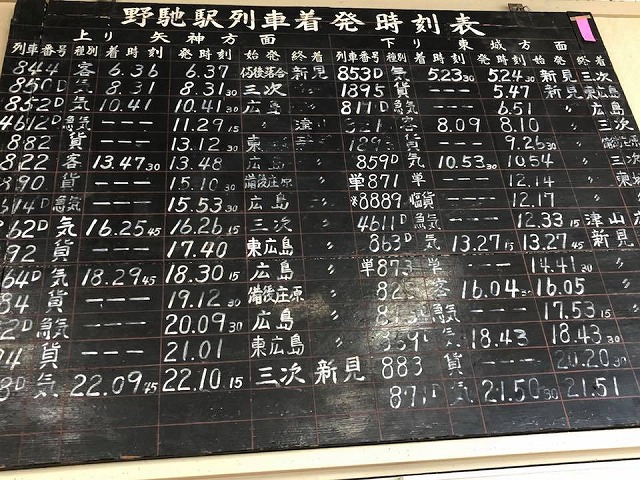 野馳駅列車着発時刻表
上り 矢神方面
列車番号 種別 着時刻 発時刻 始発 終着
844 客 6.36 6.37 備後落合 新見
850D 気 8.31 8.31 30 三次 〃
852D 気 10.41 10.41 30 広島 〃
4612D 急気 --- 11.29 15 〃
882 貨 --- 13.12 30 東
822 客 13.47 30 13.48 広島 〃
90 貨 --- 15.10 30 備後庄原 〃
急気 --- 15.53 30 広島 〃
62D 気 16.25 45 16.26 15 三次 〃
92 貨 --- 17.40 東広島 〃
64D 気 18.29 45 18.30 15 広島 〃
84 貨 --- 19.12 30 備後庄原 〃
2D 急気 --- 20.09 30 広島 〃
94 貨 --- 21.01 東広島 〃
8D 気 22.09 45 22.10 15 三次 新見
下り 東城方面
列車番号 種別 着時刻 発時刻 始発 終着
853D 気 5.23 30 5.24 30 新見 三次
1895 貨 --- 5.47 新見 東広島
811D 急気 --- 6.51 〃 広島
客 8.09 8.10 〃 三次
貨 --- 9.26 30 〃
859D 気 10.53 30 10.54 〃 三次
単871 単 --- 12.14 〃 東
※8889 臨貨 --- 12.17 〃
4611D 急気 --- 12.33 15 津山
863D 気 13.27 15 13.27 45 新見
単873 単 --- 14.41 30 〃
客 16.04 16.05 〃
急気 --- 17.53 15
気 18.43 18.43 30
883 貨 --- 20.20 30
871D 気 21.50 30 21.51